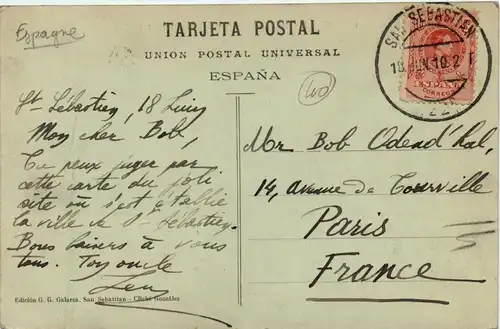 Espagne
TARJETA POSTAL
UNION POSTAL UNIVERSAL
ESPAÑA
SAN SEBASTIEN
18 JUN 10. 2
ESPAÑA
CORREOS
St. Sébastien, 18 Juin
Mon cher Bob,
Tu peux juger par
cette carte du joli
site où s'est établie
la ville de St-Sébastien.
Bons baisers à vous
tous. Ton oncle
Mr Bob Odend'hal,
14, avenue de Tourville
Paris
France
Edición G. G. Galarza. San Sebastian - Cliché González